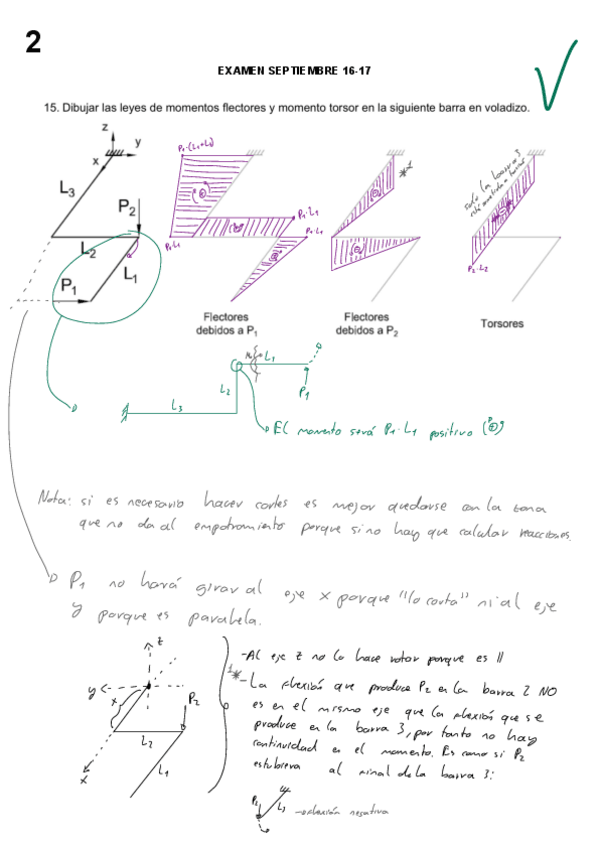 2
EXAMEN SEPTIEMBRE 16-17
15. Dibujar las leyes de momentos flectores y momento torsor en la siguiente barra en voladizo.
z
y
x
L3
P2
L2
L1
P1
P1·(L1+L3)
P1·L1
P1·L1
P1·L1
solo la barra 3
P2·L2
Flectores
debidos a P1
Flectores
debidos a P2
Torsores
L1
L2
P1
L3
El momento será P1·L1 positivo
Nota: si es necesario hacer cortes es mejor quedarse con la zona
que no da al empotramiento porque sino hay que calcular reacciones.
P1 no hará girar al eje x porque "lo corta" ni al eje
y porque es paralela.
z
y
x
x
P2
L2
L1
-Al eje z no lo hace rotar porque es //
1* -La flexión que produce P2 en la barra 2 NO
es en el mismo eje que la flexión que se
produce en la barra 3, por tanto no hay
continuidad en el momento. Es como si P2
estubiera al final de la barra 3:
P2
L3
flexión negativa